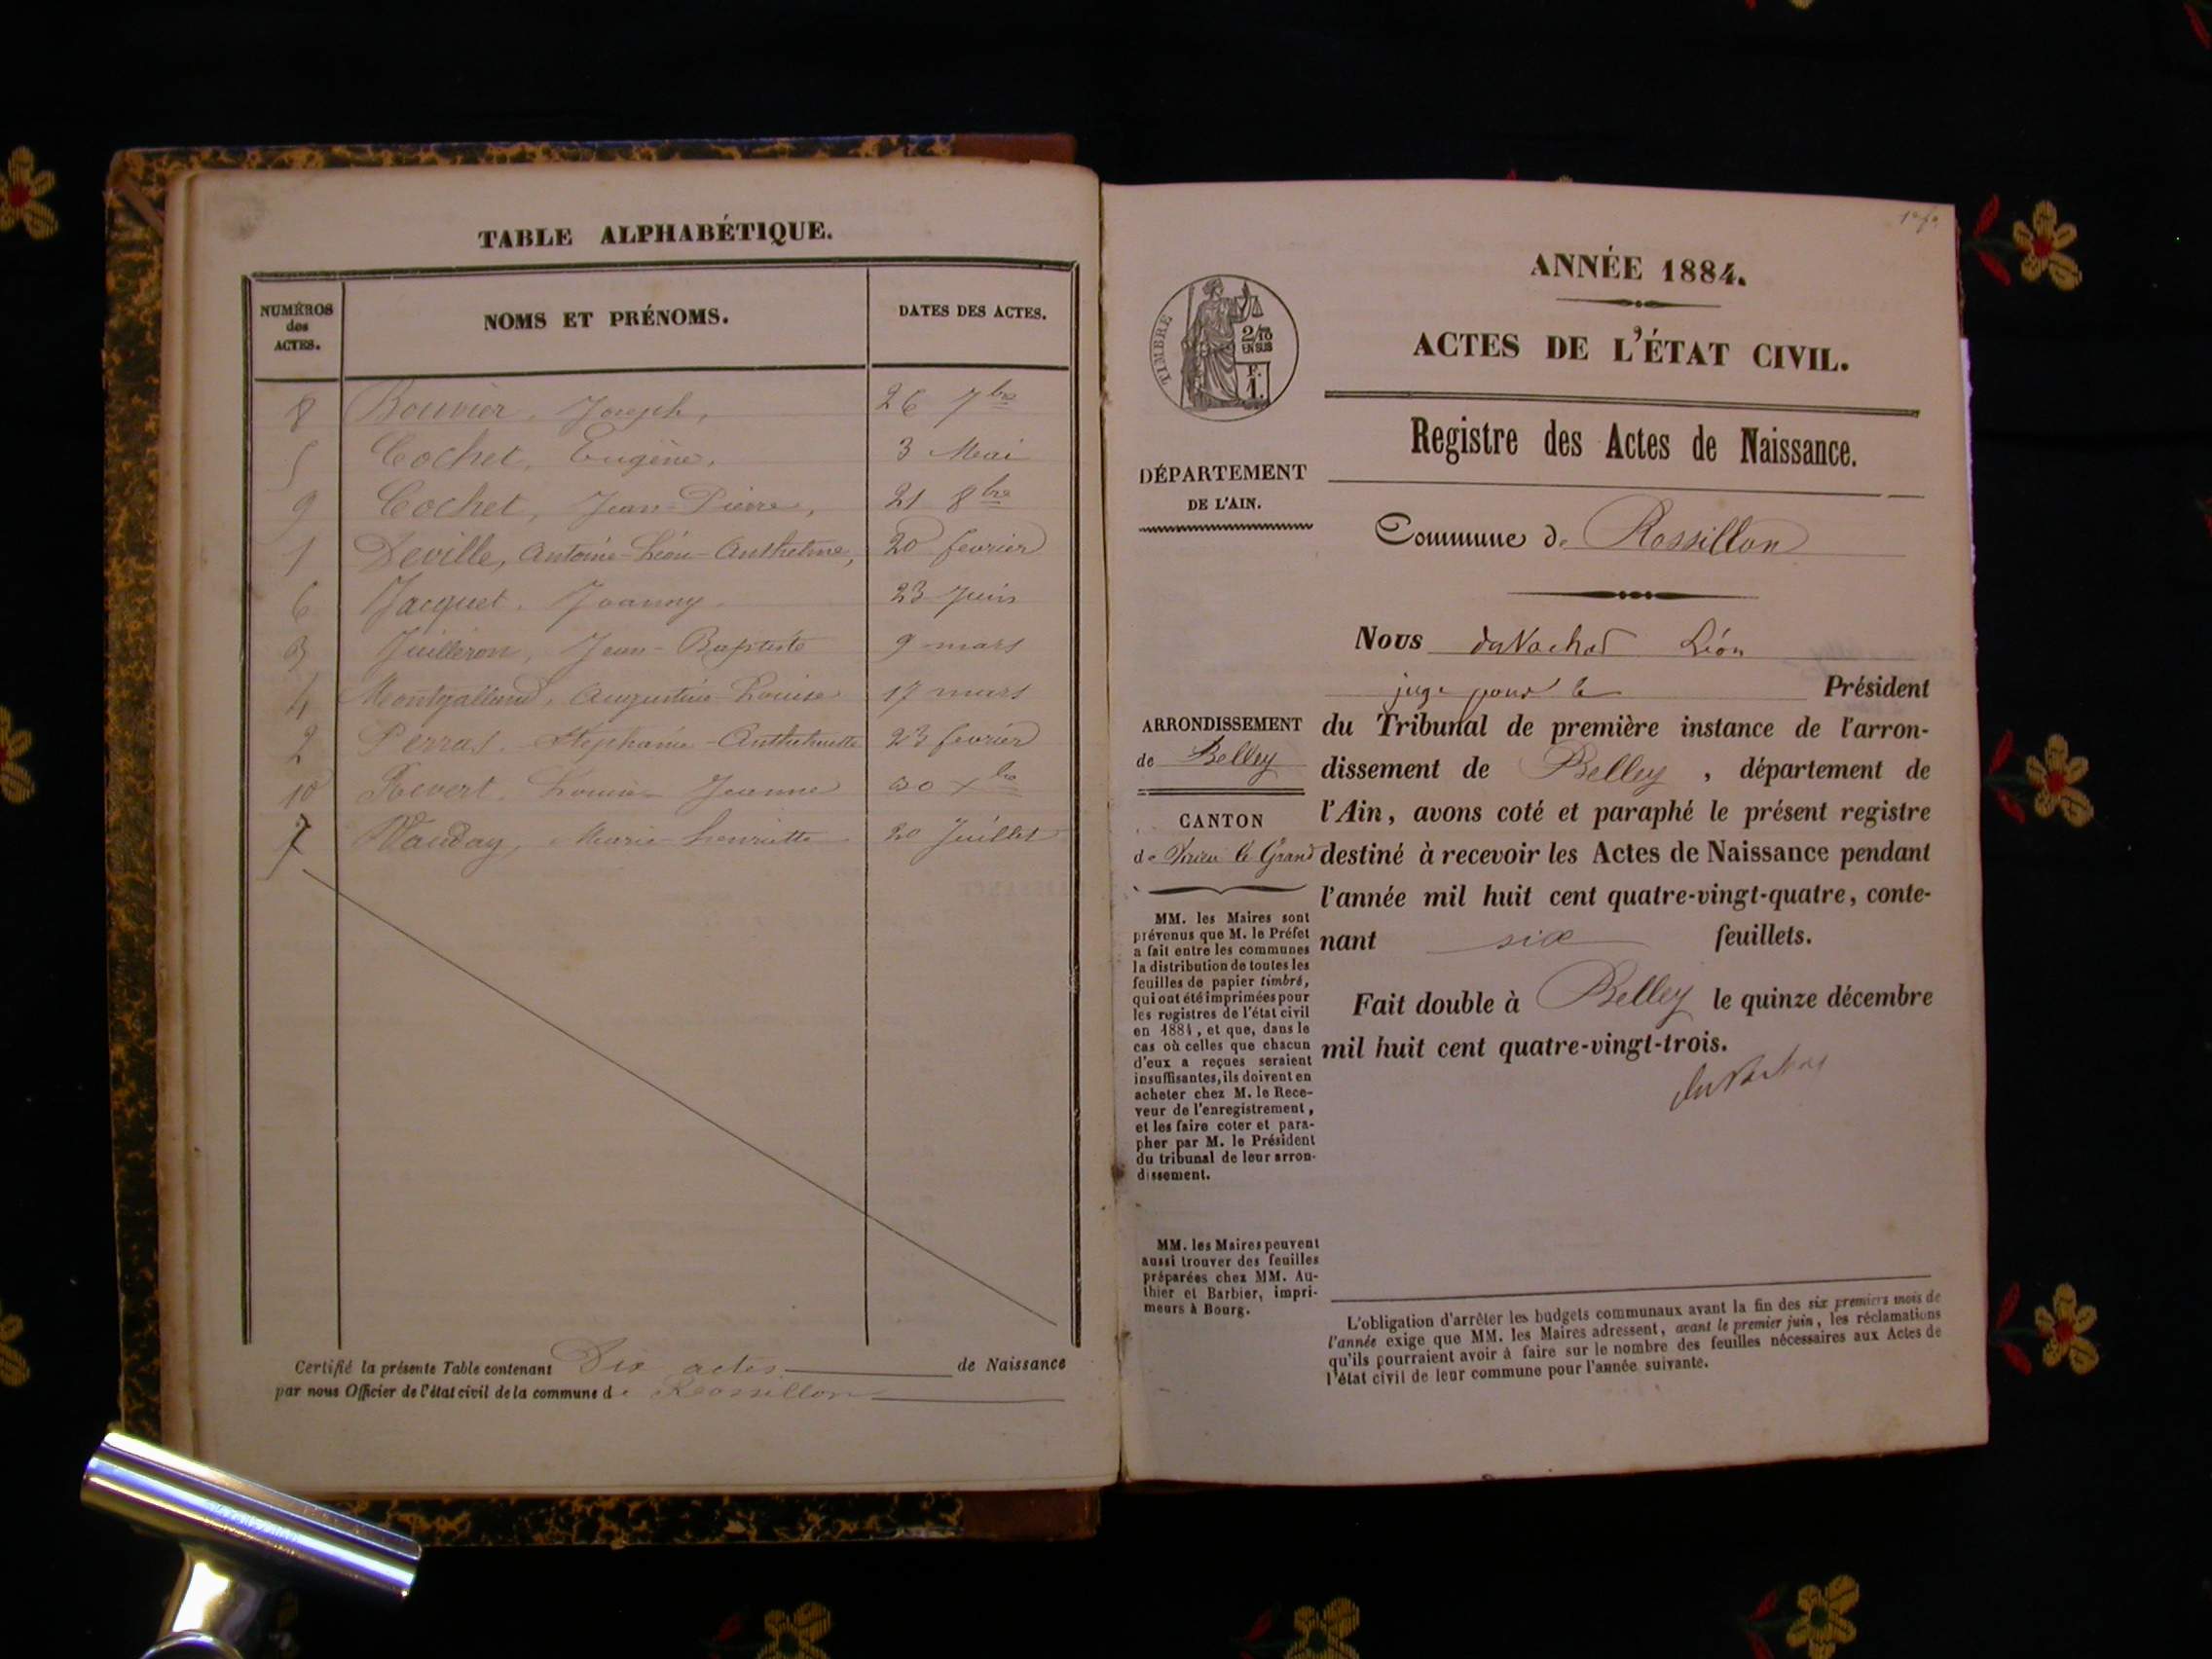 TABLE ALPHABÉTIQUE.
NUMÉROS des ACTES. NOMS ET PRÉNOMS. DATES DES ACTES.
8 Bouvier, Joseph, 26 7bre
5 Cochet, Eugène, 3 Mai
9 Cochet, Jean-Pierre, 21 8bre
1 Deville, Antoine-Léon-Anthelme, 20 février
6 Jacquet, Joanny 23 Juin
3 Juilleron, Jean-Baptiste 9 mars
4 Augustine-Louise 17 mars
2 Perras, Stéphanie-Anthelmette 23 février
10 Revert, Louise Jeanne 30 xbre
7 Vauday, Marie-henriette 20 Juillet
Certifié la présente Table contenant Dix actes de Naissance
par nous Officier de l'état civil de la commune de Rossillon
1er fo
ANNÉE 1884.
ACTES DE L'ÉTAT CIVIL.
TIMBRE
2/10
EN SUS
F.
1.
Registre des Actes de Naissance.
DÉPARTEMENT
DE L'AIN.
Commune de Rossillon
Nous duVachat Léon
juge pour le Président
du Tribunal de première instance de l'arron-
dissement de Belley, département de
l'Ain, avons coté et paraphé le présent registre
destiné à recevoir les Actes de Naissance pendant
l'année mil huit cent quatre-vingt-quatre, conte-
nant six feuillets.
Fait double à Belley le quinze décembre
mil huit cent quatre-vingt-trois.
duVachat
ARRONDISSEMENT
de Belley
CANTON
de Virieu le Grand
MM. les Maires sont
prévenus que M. le Préfet
a fait entre les communes
la distribution de toutes les
feuilles de papier timbré,
qui ont été imprimées pour
les registres de l'état civil
en 1884, et que, dans le
cas où celles que chacun
d'eux a reçues seraient
insuffisantes, ils doivent en
acheter chez M. le Rece-
veur de l'enregistrement,
et les faire coter et para-
pher par M. le Président
du tribunal de leur arron-
dissement.
MM. les Maires peuvent
aussi trouver des feuilles
préparées chez MM. Au-
thier et Barbier, impri-
meurs à Bourg.
L'obligation d'arrêter les budgets communaux avant la fin des six premiers mois de
l'année exige que MM. les Maires adressent, avant le premier juin, les réclamations
qu'ils pourraient avoir à faire sur le nombre des feuilles nécessaires aux Actes de
l'état civil de leur commune pour l'année suivante.